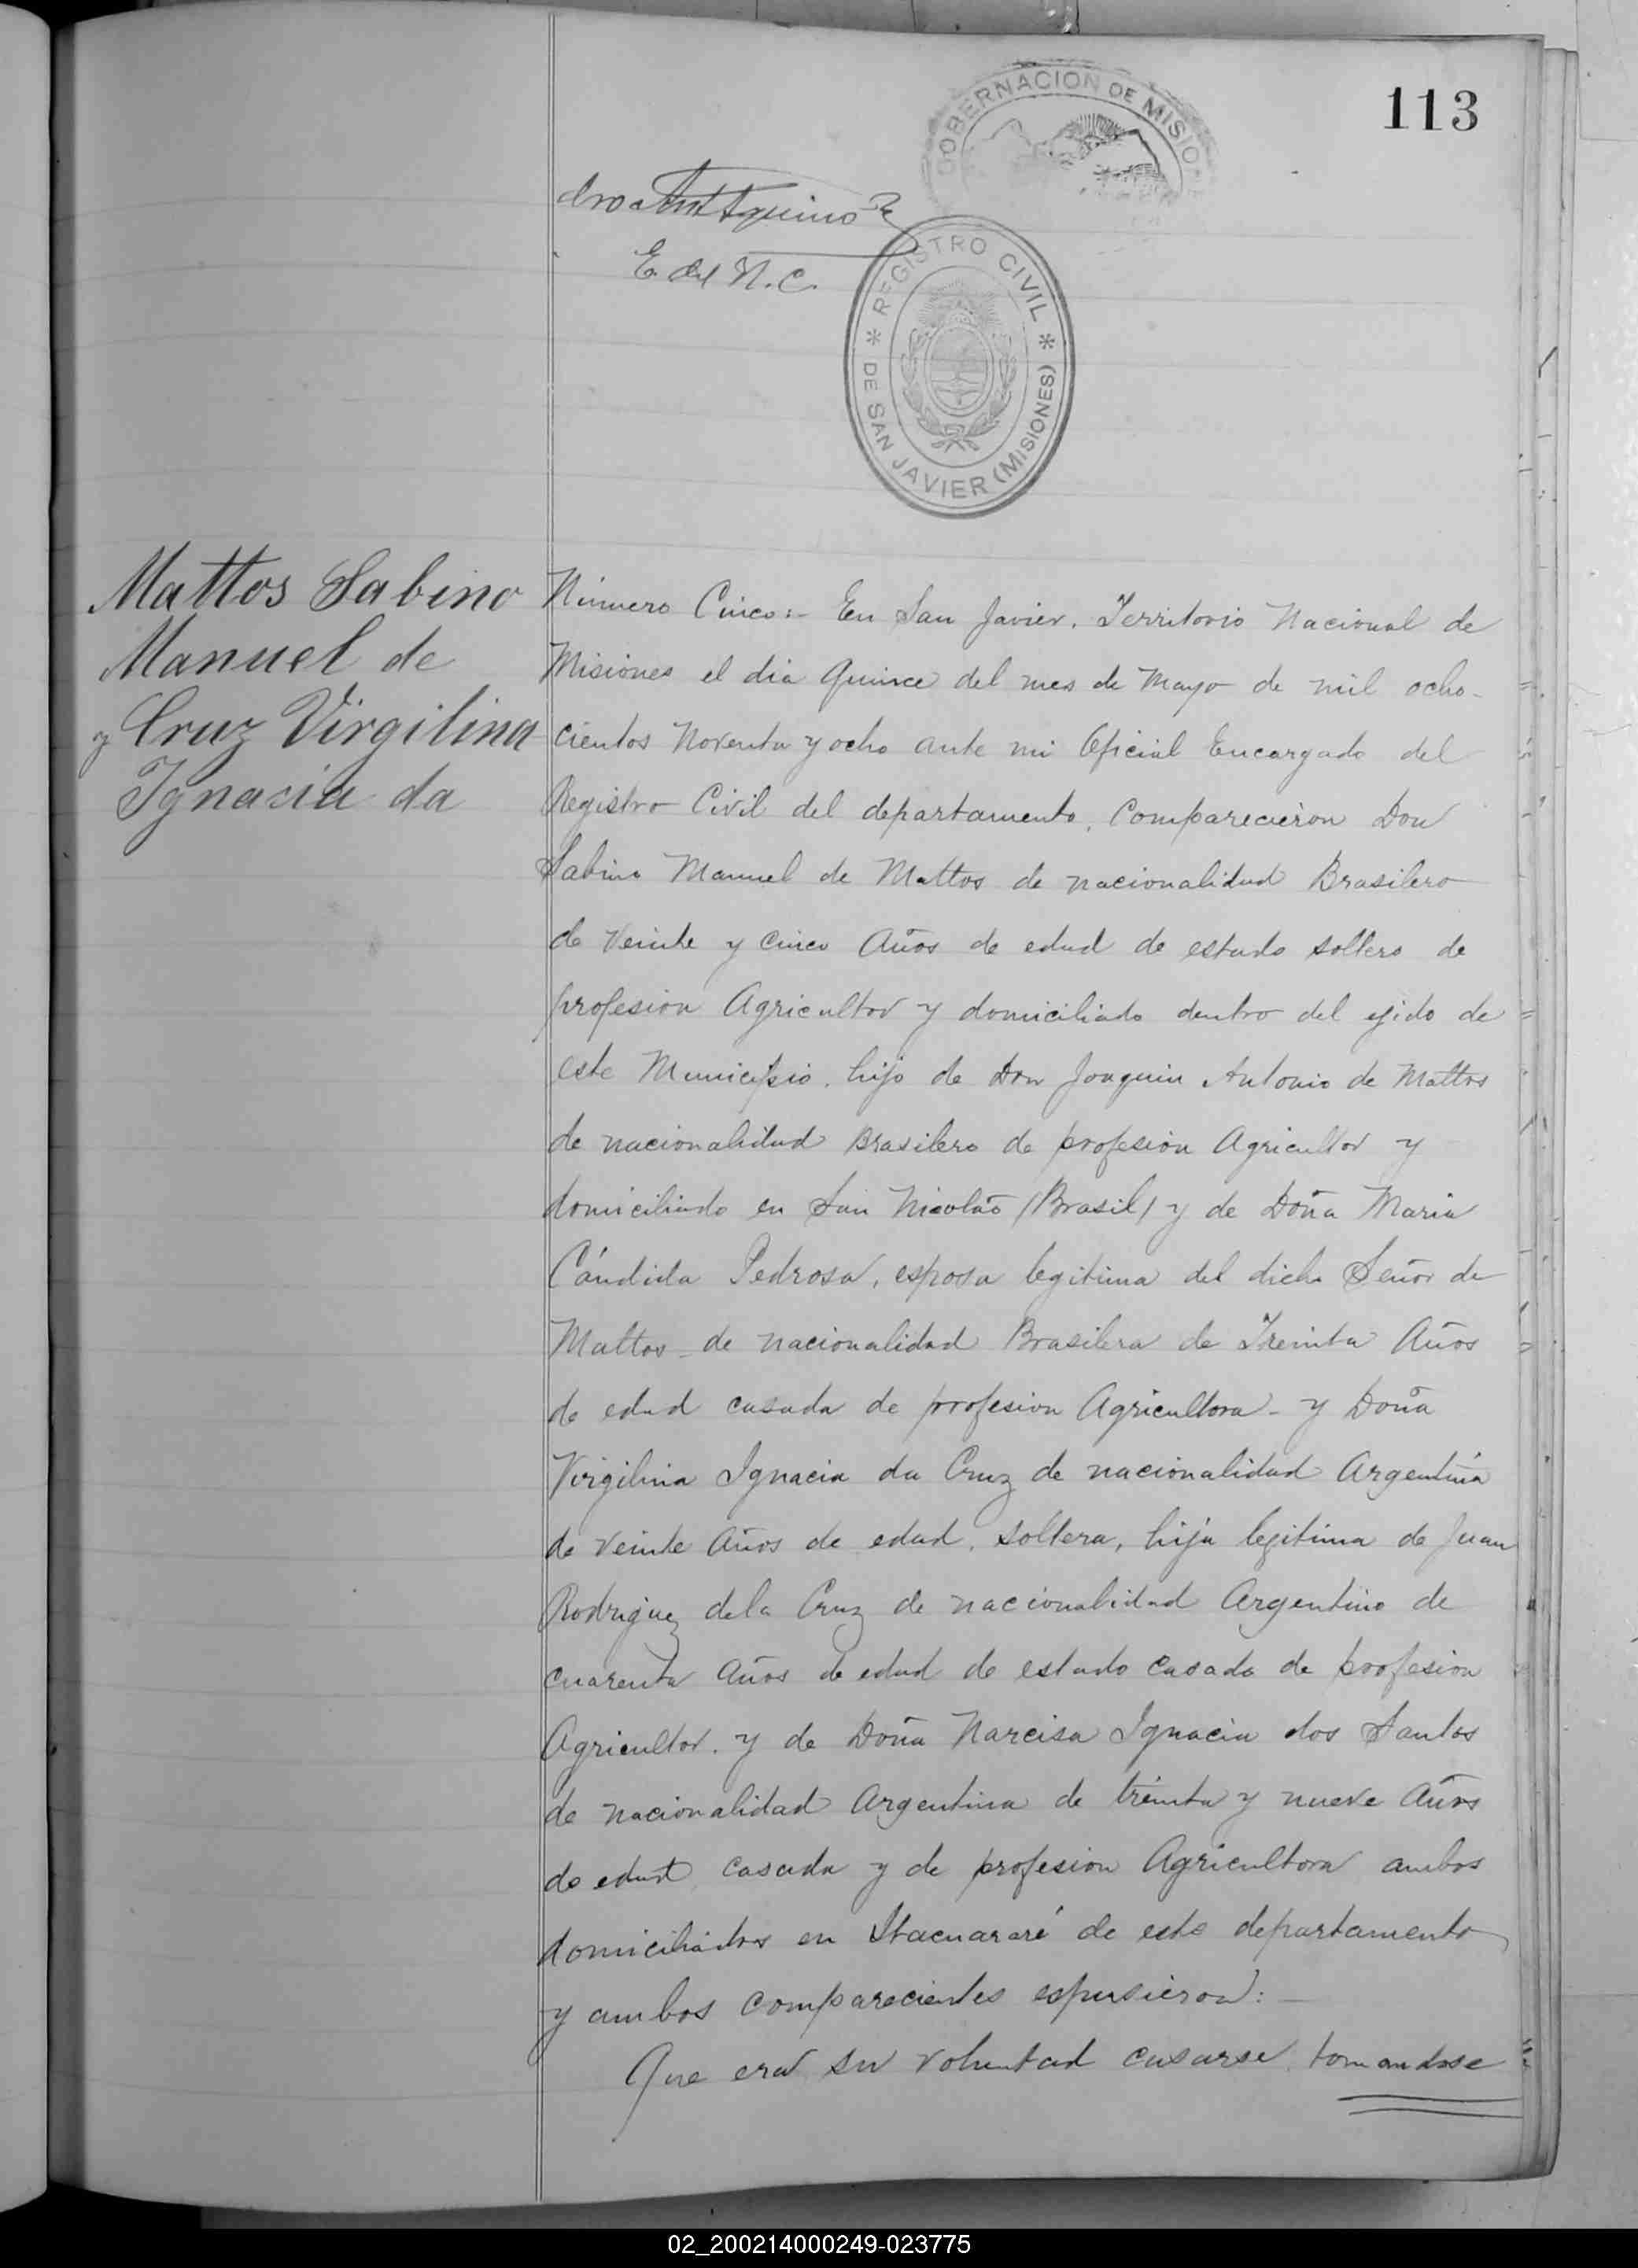 113
GOBERNACION DE MISIO
dro Ant Aquino
E. del R. C.
* REGISTRO CIVIL *
DE SAN JAVIER (MISIONES)
Mattos Sabino
Manuel de
y Cruz Virgilina
Ignacia da
Número Cinco:- En San Javier. Territorio Nacional de
Misiones el dia Quince del mes de Mayo de mil ocho-
cientos Noventa y ocho ante mi Oficial Encargado del
Registro Civil del departamento, Comparecieron Don
Sabino Manuel de Mattos de nacionalidad Brasilero
de Veinte y cinco Años de edad de estado soltero de
profesion Agricultor y domiciliado dentro del ejido de
este Municipio. hijo de Don Joaquin Antonio de Mattos
de nacionalidad Brasilero de profesion Agricultor y
domiciliado en San Nicolão (Brasil) y de Doña Maria
Cándida Pedrosa, esposa legitima del dicho Señor de
Mattos - de nacionalidad Brasilera de Treinta Años
de edad casada de profesion Agricultora - y Doña
Virgilina Ignacia da Cruz de nacionalidad Argentina
de veinte Años de edad, soltera, hija legitima de Juan
Rodriguez dela Cruz de nacionalidad Argentino de
cuarenta Años de edad de estado casado de profesion
Agricultor. y de Doña Narcisa Ignacia dos Santos
de nacionalidad Argentina de treinta y nueve Años
de edad, casada y de profesion Agricultora ambos
domiciliados en Itacuararé de este departamento
y ambos comparecientes espusieron:-
Que era su voluntad casarse, tomandose
02_200214000249-023775